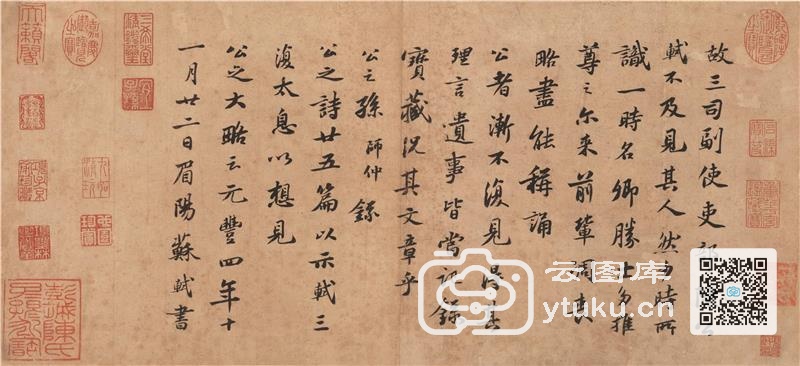 故三司副使吏
軾不及見其人然少時所
識一時名卿勝士多推
尊之尔来前輩
略盡能稱誦
公者漸不復見
理言遺事皆當記錄
寶藏況其文章乎
公之孫師仲錄
公之詩廿五篇以示軾三
復太息以想見
公之大略云元豐四年十
一月廿二日眉陽蘇軾書
云图库
ytuku.cn